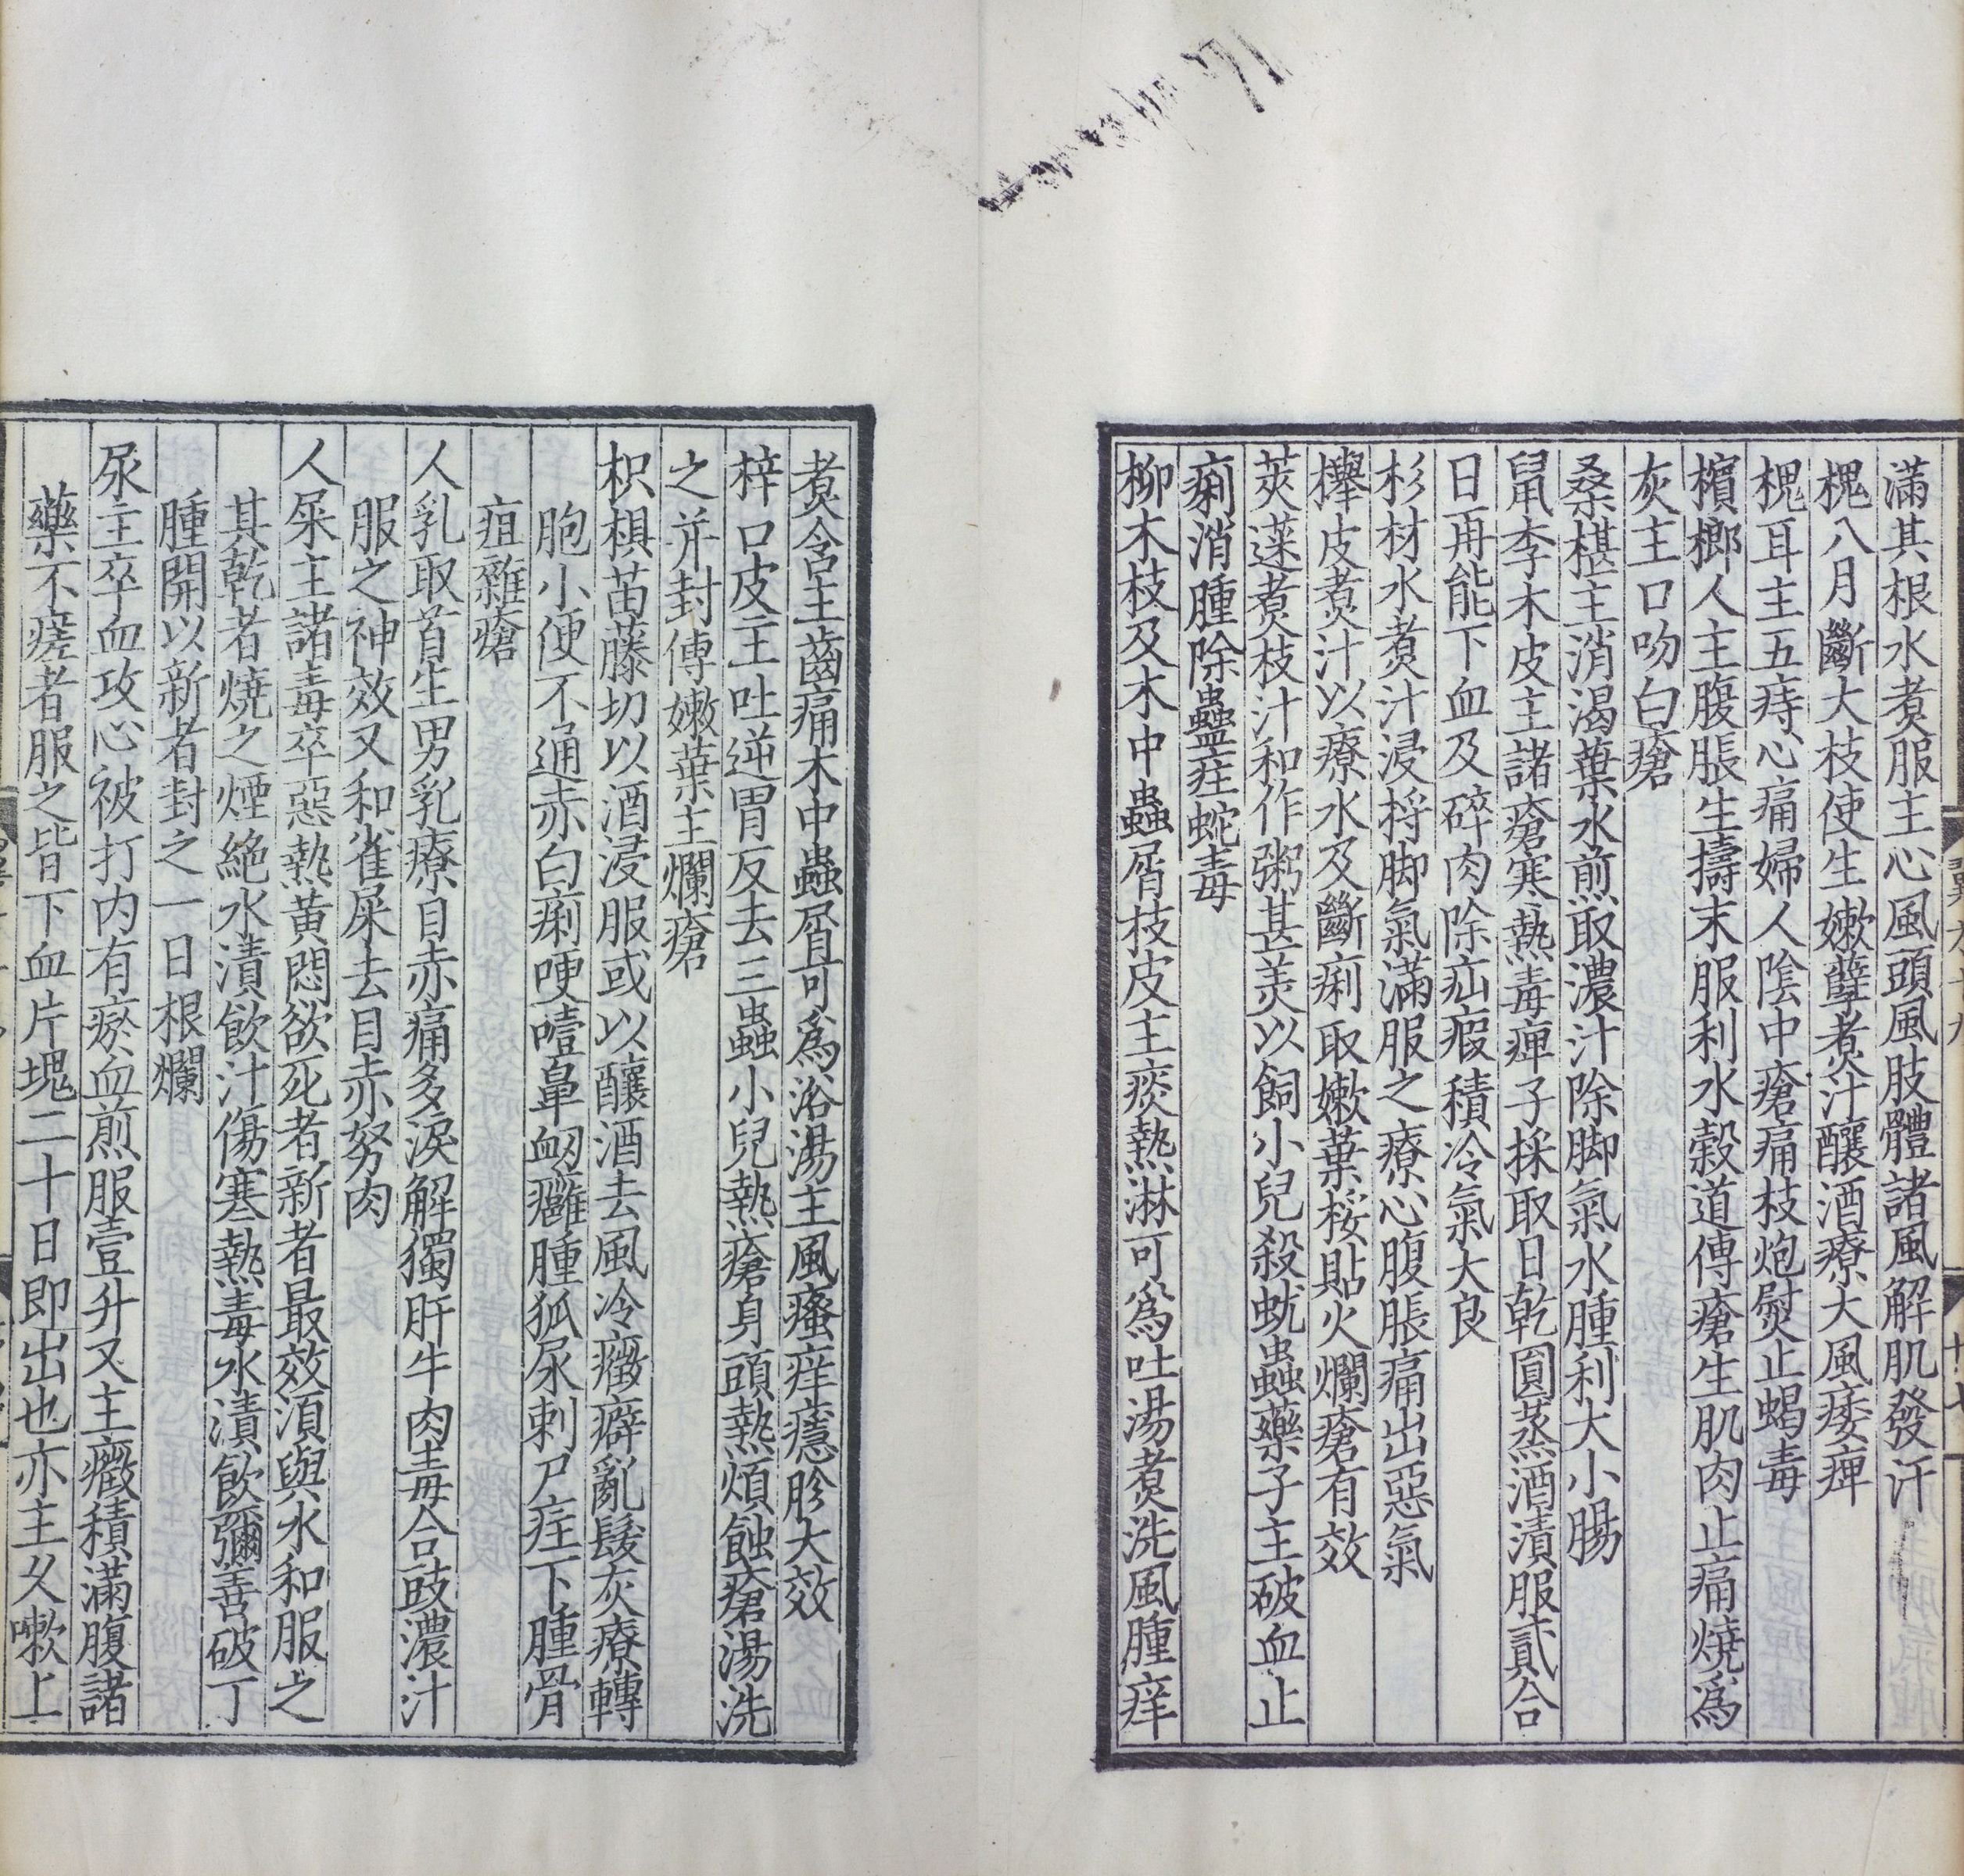 滿其根水煮服主心風頭風肢體諸風解肌發汗
槐八月斷大枝使生嫩孽煮汁釀酒療大風痿痺
槐耳主五痔心痛婦人陰中瘡痛枝炮熨止蝎毒
檳榔人主腹脹生擣末服利水穀道傅瘡生肌肉止痛燒爲
灰主口吻白瘡
桑椹主消渴葉水煎取濃汁除脚氣水腫利大小腸
鼠李木皮主諸瘡寒熱毒痺子採取日乾圓蒸酒漬服貳合
日再能下血及碎肉除疝瘕積冷氣大良
杉材水煮汁浸捋脚氣滿服之療心腹脹痛出惡氣
櫸皮煮汁以療水及斷痢取嫩葉挼貼火爛瘡有效
莢蒾煮枝汁和作粥甚美以飼小兒殺蚘蟲藥子主破血止
痢消腫除蠱疰蛇毒
柳木枝及木中蟲屑枝皮主痰熱淋可爲吐湯煮洗風腫痒
煮含主齒痛木中蟲屑可爲浴湯主風瘙痒癮胗大效
梓口皮主吐逆胃反去三蟲小兒熱瘡身頭熱煩蝕瘡湯洗
之并封傅嫩葉主爛瘡
枳椇苗藤切以酒浸服或以釀酒去風冷癥癖亂髮灰療轉
胞小便不通赤白痢哽噎鼻衄癰腫狐尿刺尸疰下腫骨
疽雜瘡
人乳取首生男乳療目赤痛多淚解獨肝牛肉毒合豉濃汁
服之神效又和雀屎去目赤努肉
人屎主諸毒卒惡熱黃悶欲死者新者最效須與水和服之
其乾者燒之煙絕水漬飲汁傷寒熱毒水漬飲彌善破丁
腫開以新者封之一日根爛
尿主卒血攻心被打內有瘀血煎服壹升又主癥積滿腹諸
藥不瘥者服之皆下血片塊二十日即出也亦主久嗽上